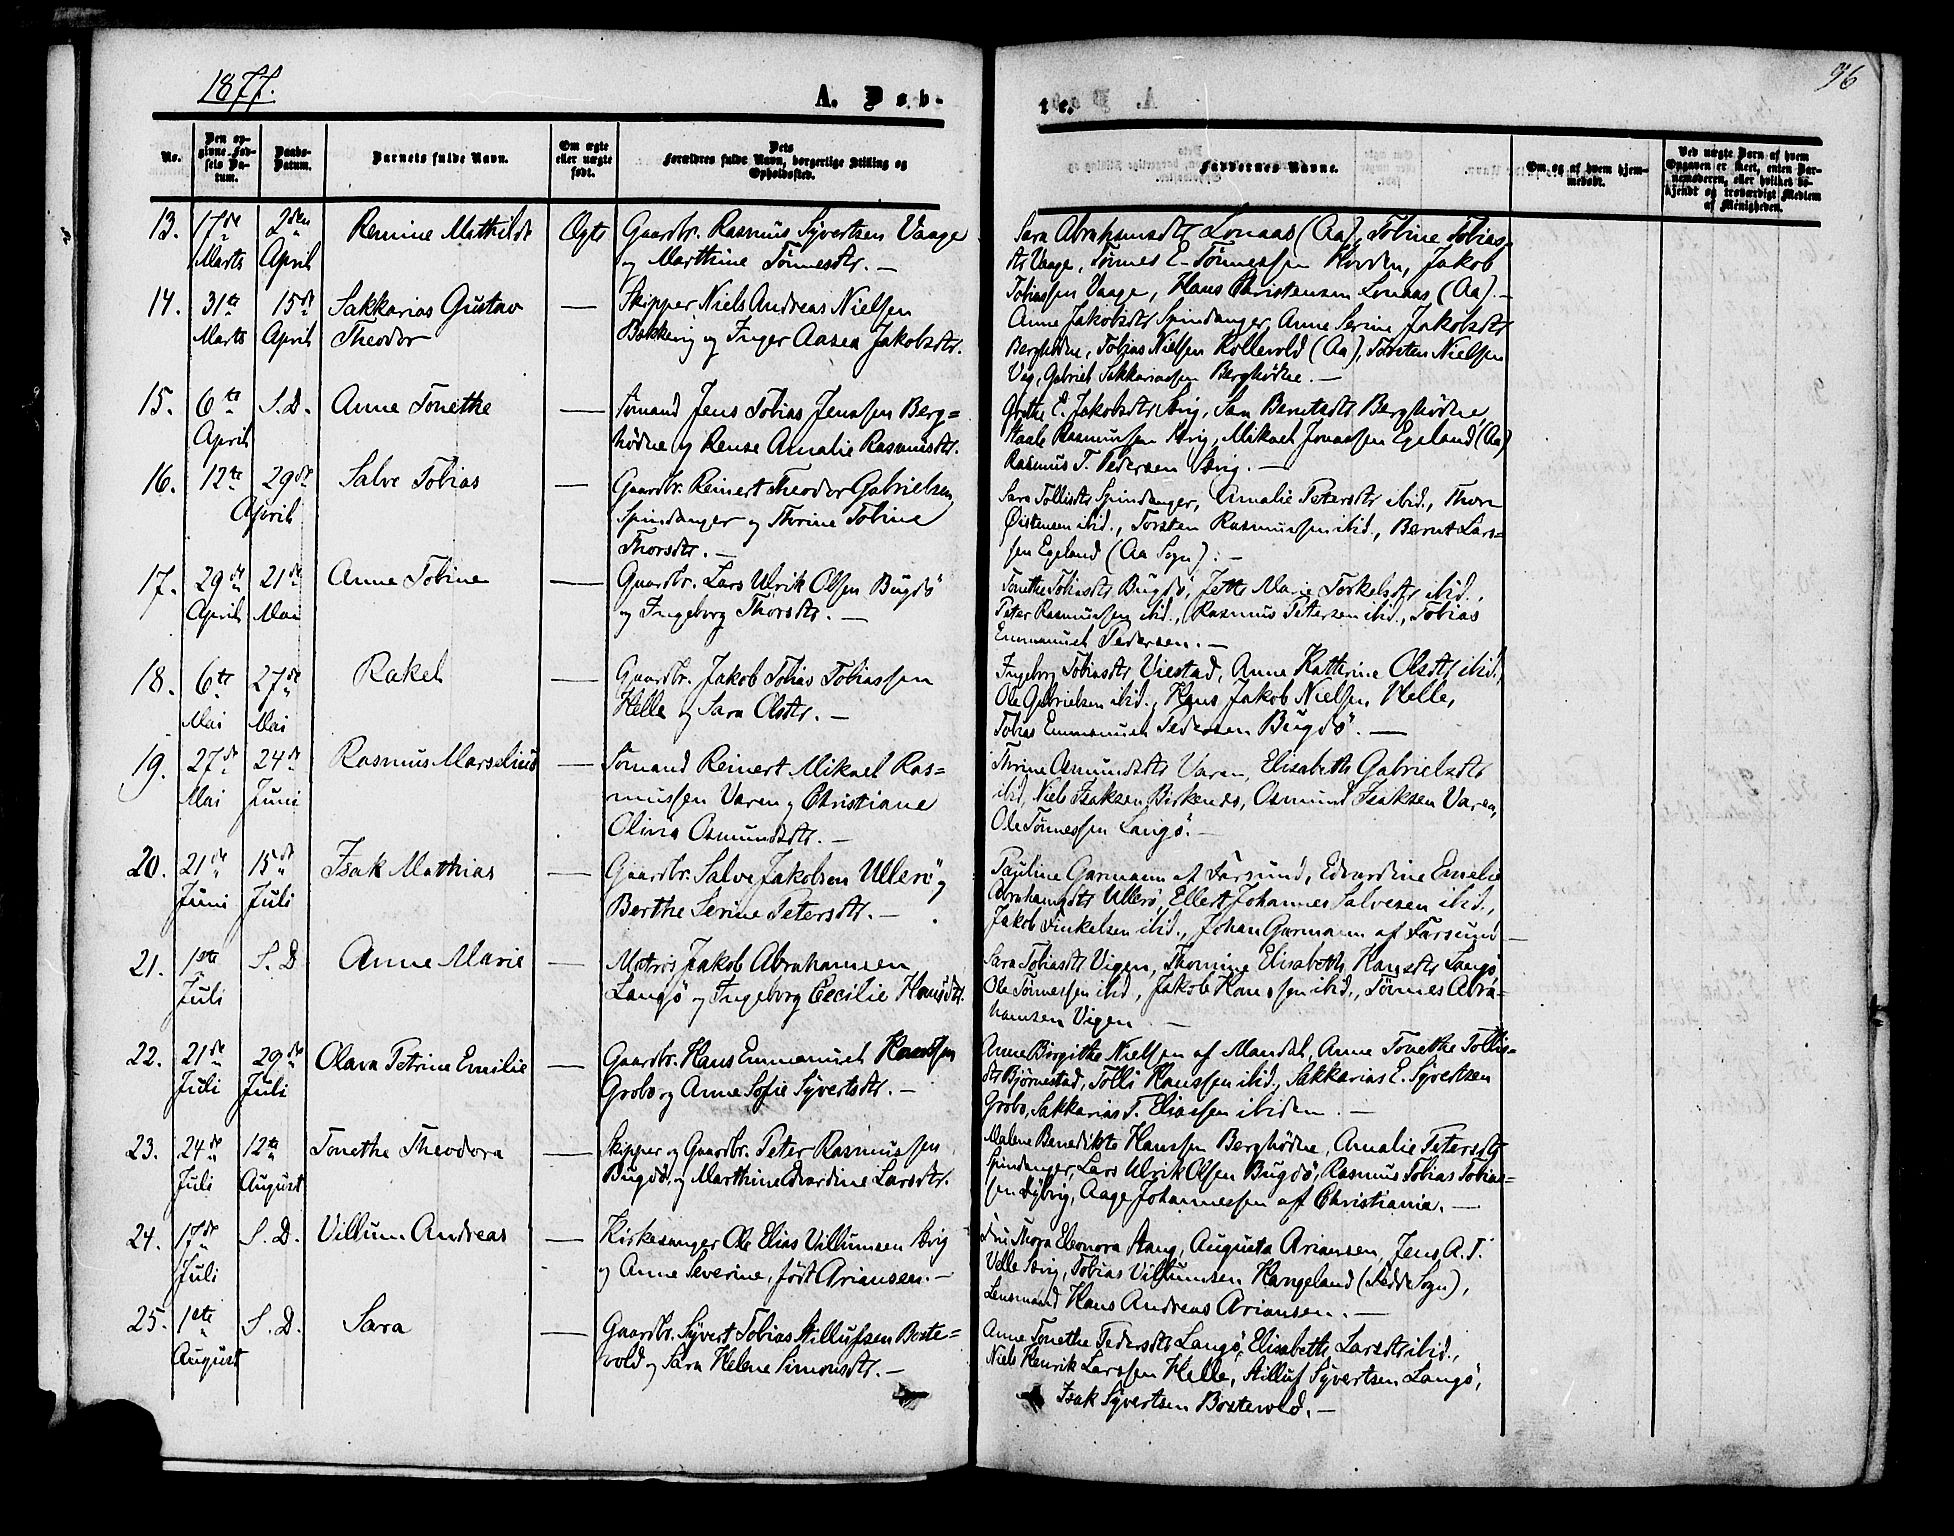 1877.
A. Døb-
te.
96
No.
Den opgivne Fødsels Datum.
Daabs-Datum.
Barnets fulde Navn.
Om ægte eller uægte født.
Dets Forældres fulde Navn, borgerlige Stilling og Opholdssted.
Faddernes Navne.
Om og af hvem hjemmedøbt.
Ved uægte Børn af hvem Opgaven er skeet, enten Barnemoderen, eller hvilket bekjendt og troværdigt Medlem af Menigheden.
13. 17de Marts 2den April Remine Mathilde Ægte
Gaardbr. Rasmus Syvertsen Vaage
og Marthine Tønnesdtr. —
Sara Abrahamsdtr Lonaas (Aa), Tobine Tobias-
dtr Vaage, Tønnes E. Tønnessen, Jakob
Tobiassen Vaage, Hans Christensen Lonaas (Aa). —
14. 31te Marts 15de April Sakkarias Gustav
Theodor —
Skipper Niels Andreas Nielsen
og Inger Aasea Jakobsdtr.
Anne Jakobsdtr Spindanger, Anne Serine Jakobsdtr
Berghødne, Tobias Nielsen Kollevold (Aa), Torsten Nielsen
Gabriel Sakkariassen Berghødne. —
15. 6te April S.D. Anne Tonethe —
Sømand Jens Tobias Jenssen Berg=
hødne og Rense Amalie Rasmusdtr.
Grethe E. Jakobsdtr, Sara Berntsdtr Berghødne,
Staale Rasmussen, Mikael Jonassen Egeland (Aa)
Rasmus T. Pedersen. —
16. 12te 29de April Salve Tobias —
Gaardbr. Reinert Theodor Gabrielsen
Spindanger og Thrine Tobine
Thorsdtr. —
Sara Tollisdtr Spindanger, Amalie Petersdtr ibid., Thore
Øistensen ibid., Torsten Rasmussen ibid., Bernt Lars=
sen Egeland (Aa Sogn). —
17. 29de April 21de Mai Anne Tobine —
Gaardbr. Lars Ulrik Olsen Bugdø
og Ingeborg Thorsdtr. —
Tonethe Tobiasdtr Bugdø, Jette Marie Torkelsdtr ibid.,
Peter Rasmussen ibid., Rasmus Petersen ibid., Tobias
Emmanuel Pedersen. —
18. 6te Mai 27de Mai Rakel —
Gaardbr. Jakob Tobias Tobiassen
Helle og Sara Olsdtr. —
Ingeborg Tobiasdtr Viestad, Anne Kathrine Olsdtr ibid.,
Ole Gabrielsen ibid., Hans Jakob Nielsen, Helle,
Tobias Emmanuel Pedersen Bugdø. —
19. 27de Mai 24de Juni Rasmus Marselius —
Sømand Reinert Mikael Ras=
mussen Varen og Christiane
Olivia Osmundsdtr. —
Thrine Osmundsdtr Varen, Elisabeth Gabrielsdtr
ibid, Niels Isaksen Birkenes, Osmund Isaksen Varen,
Ole Tønnessen Langø. —
20. 21de Juni 15de Juli Isak Mathias —
Gaardbr. Salve Jakobsen Ullerø og
Berthe Serine Petersdtr. —
Pauline Garmann af Farsund, Edvardine Emelie
Abrahamsdtr Ullerø, Ellert Johannes Salvesen ibid.,
Jakob Finkelsen ibid., Johan Garmann af Farsund —
21. 1ste Juli S.D. Anne Marie —
Matros Jakob Abrahamsen
Langø og Ingeborg Cecilie Hansdtr.
Sara Tobiasdtr Vigen, Thomine Elisabeth Hansdtr Langø
Ole Tønnessen ibid., Jakob Hanssen ibid., Tønnes Abra=
hamsen Vigen —
22. 21de Juli 29de Juli Olava Petrine Emilie —
Gaardbr. Hans Emmanuel Hanssen
Grobo og Anne Sofie Syvertsdtr. —
Anne Birgithe Nielsen af Mandal, Anne Tonethe Tollis=
dtr Bjørnestad, Tolli Hanssen ibid., Sakkarias E. Syvertsen
Grobo, Sakkarias T. Eliassen ibidem. —
23. 24de Juli 12te August Tonethe Theodora —
Skipper og Gaardbr. Peter Rasmussen
Bugdø og Marthine Edvardine Larsdtr.
Malene Benedikte Hanssen Berghødne, Amalie Petersdtr
Spindanger, Lars Ulrik Olsen Bugdø, Rasmus Tobias Tobias=
sen Dybvig, Aage Johannessen af Christiania. —
24. 17de Juli S.D. Villum Andreas —
Kirkesanger Ole Elias Villumsen
og Anne Severine, født Ariansen. —
Fru Thora Eleonora Stang, Augusta Ariansen, Jens A. T.
Velle, Tobias Villumsen Haugeland (Fedde Sogn),
Lensmand Hans Andreas Ariansen. —
25. 1ste August S.D. Sara —
Gaardbr. Syvert Tobias Stillufsen Boste=
vold og Sara Helene Simonsdtr. —
Anne Tonethe Pedersdtr Langø, Elisabeth Larsdtr ibid.,
Niels Henrik Larssen Helle, Stilluf Syvertsen Langø,
Isak Syvertsen Bostevold. —